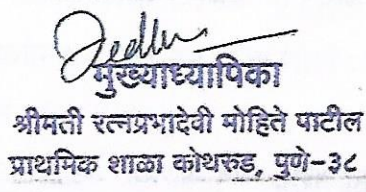 मुख्याध्यापिका
श्रीमती रत्नप्रभादेवी मोहिते पाटील
प्राथमिक शाळा कोथरुड, पुणे-३८